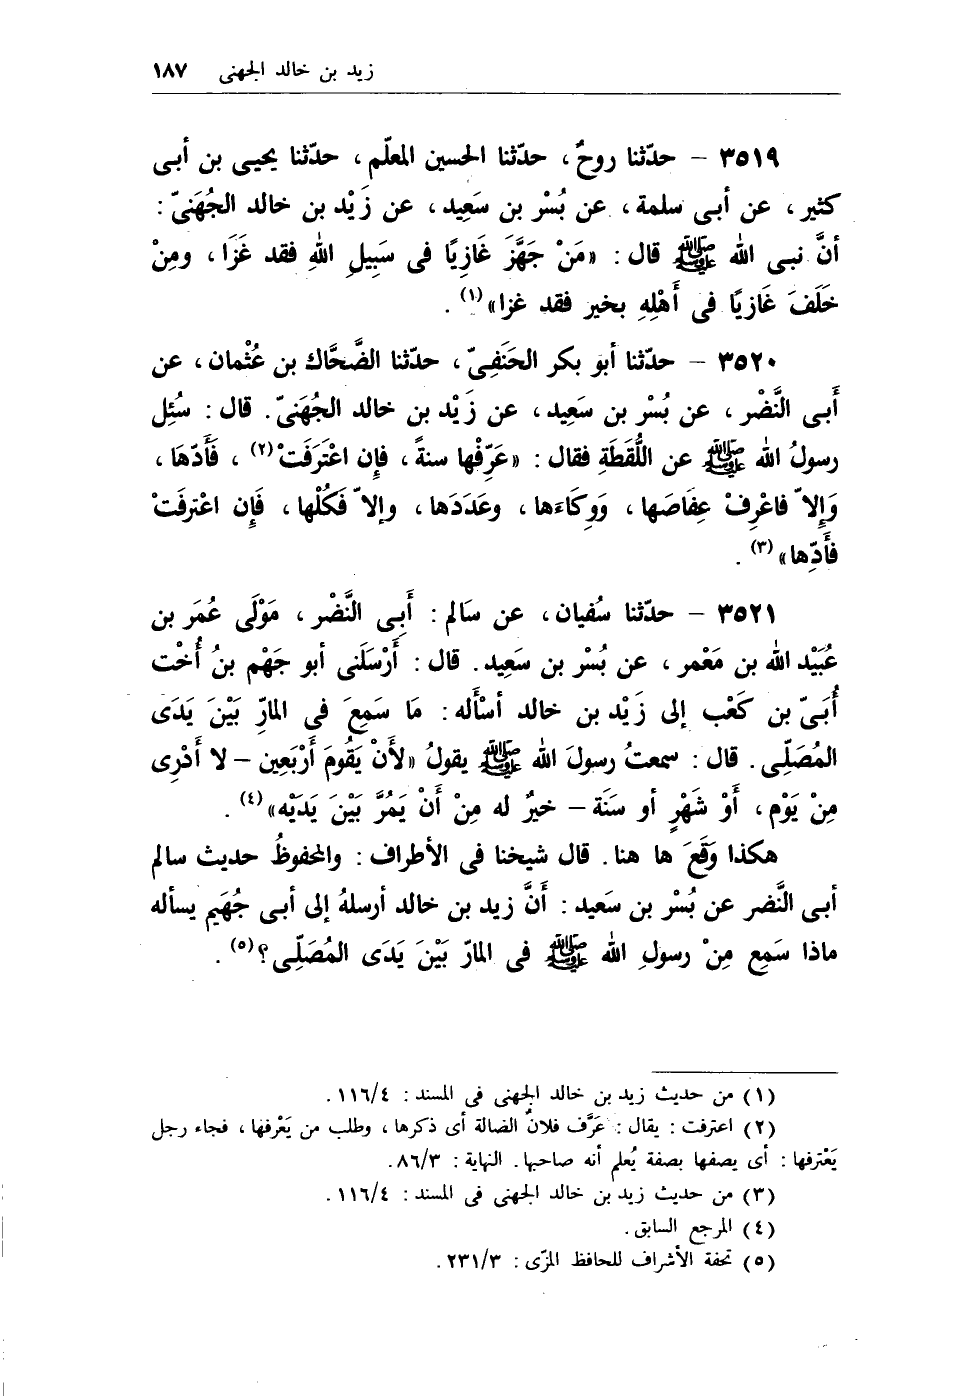 زيد بن خالد الجهنى ١٨٧
٣٥١٩ – حدّثنا روحٌ، حدّثنا الحسين المعلّم، حدّثنا يحيى بن أبى
كثير، عن أبى سلمة، عن بُسْر بن سَعِيد، عن زَيْد بن خالد الجُهَنىّ:
أنَّ نبى الله ﷺ قال: «مَنْ جَهَّزَ غَازِيًا فى سَبِيلِ اللهِ فقد غَزَا، ومِنْ
خَلَفَ غَازيًا فى أَهْلِهِ بخير فقد غزا»(١).
٣٥٢٠ – حدّثنا أبو بكر الحَنَفِىّ، حدّثنا الضَّحَّاك بن عُثْمان، عن
أَبى النَّضْر، عن بُسْر بن سَعِيد، عن زَيْد بن خالد الجُهَنىّ. قال: سُئِل
رسولُ الله ﷺ عن اللُّقَطَةِ فقال: «عَرِّفْها سنةً، فإن اعْتَرَفَتْ(٢)، فَأَدّهَا،
وَإلاّ فاعْرِفْ عِفَاصَها، وَوِكَاءَها، وعَدَدَها، وإلاّ فَكُلْها، فَإِن اعْترفَتْ
فأَدِّها»(٣).
٣٥٢١ – حدّثنا سُفيان، عن سَالم: أَبِى النَّضْر، مَوْلَى عُمَر بن
عُبَيْد الله بن مَعْمر، عن بُسْر بن سَعِيد. قال: أَرْسَلَنى أبو جَهْم بنُ أُخْت
أُبَىّ بن كَعْب إلى زَيْد بن خالد أسْأَله: مَا سَمِعَ فى المارّ بَيْنَ يَدَى
المُصَلِّى. قال: سمعتُ رسولَ الله ﷺ يقولُ «لأَنْ يَقُومَ أَرْبَعِين – لا أَدْرِى
مِنْ يَوْم، أَوْ شَهْرٍ أو سَنَة – خيرٌ له مِنْ أَنْ يَمُرَّ بَيْنَ يَدَيْه»(٤).
هكذا وَقَعَ ها هنا. قال شيخنا فى الأطراف: والمحفوظُ حديث سالم
أبى النَّضر عن بُسْر بن سَعيد: أَنَّ زيد بن خالد أرسلهُ إلى أبى جُهَيم يسأله
ماذا سَمِع مِنْ رسولِ الله ﷺ فى المارّ بَيْنَ يَدَى المُصَلِّى؟(٥).
(١) من حديث زيد بن خالد الجهنى فى المسند: ١١٦/٤.
(٢) اعترفت: يقال: عَرَّف فلانٌ الضالة أى ذكرها، وطلب من يَعْرفها، فجاء رجل
يَعْترفها: أى يصفها بصفة يُعلم أنه صاحبها. النهاية: ٨٦/٣.
(٣) من حديث زيد بن خالد الجهنى فى المسند: ١١٦/٤.
(٤) المرجع السابق.
(٥) تحفة الأشراف للحافظ المزّى: ٢٣١/٣.